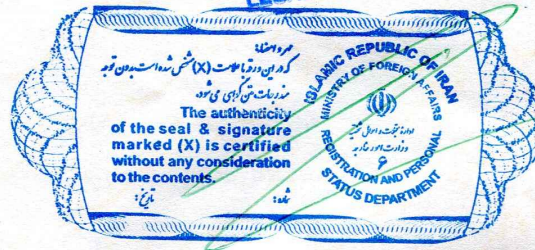 مهر و امضاء
که در این ورقه با علامت (X) مشخص شده است بدون توجه
مندرجات متن گواهی می شود.
The authenticity
of the seal & signature
marked (X) is certified
without any consideration
to the contents.
تاریخ: شماره:
ISLAMIC REPUBLIC OF IRAN
MINISTRY OF FOREIGN AFFAIRS
وزارت امور خارجه
۶
REGISTRATION AND PERSONAL
STATUS DEPARTMENT